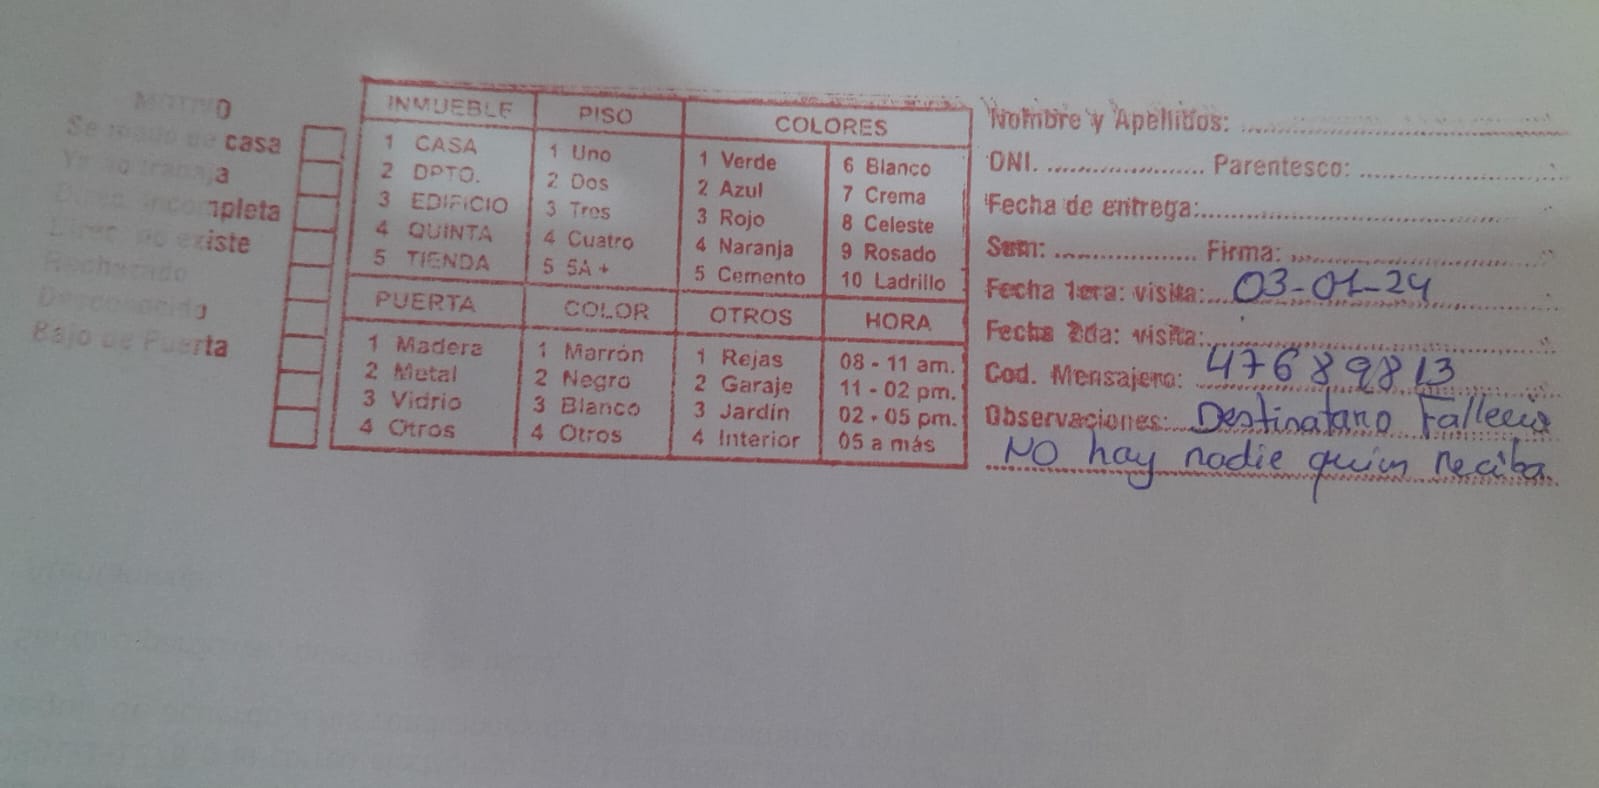 MOTIVO
Se mudó de casa
Ya no trabaja
Direc. incompleta
Direc. no existe
Rechazado
Desconocido
Bajo de Puerta
INMUEBLE PISO COLORES
1 CASA 1 Uno 1 Verde 6 Blanco
2 DPTO. 2 Dos 2 Azul 7 Crema
3 EDIFICIO 3 Tres 3 Rojo 8 Celeste
4 QUINTA 4 Cuatro 4 Naranja 9 Rosado
5 TIENDA 5 5A + 5 Cemento 10 Ladrillo
PUERTA COLOR OTROS HORA
1 Madera 1 Marrón 1 Rejas 08 - 11 am.
2 Metal 2 Negro 2 Garaje 11 - 02 pm.
3 Vidrio 3 Blanco 3 Jardín 02 - 05 pm.
4 Otros 4 Otros 4 Interior 05 a más
Nombre y Apellidos:
DNI. Parentesco:
Fecha de entrega:
Sum: Firma:
Fecha 1era: visita: 03-01-24
Fecha 2da: visita:
Cod. Mensajero: 47689813
Observaciones: Destinatario Falleció
NO hay nadie quien reciba